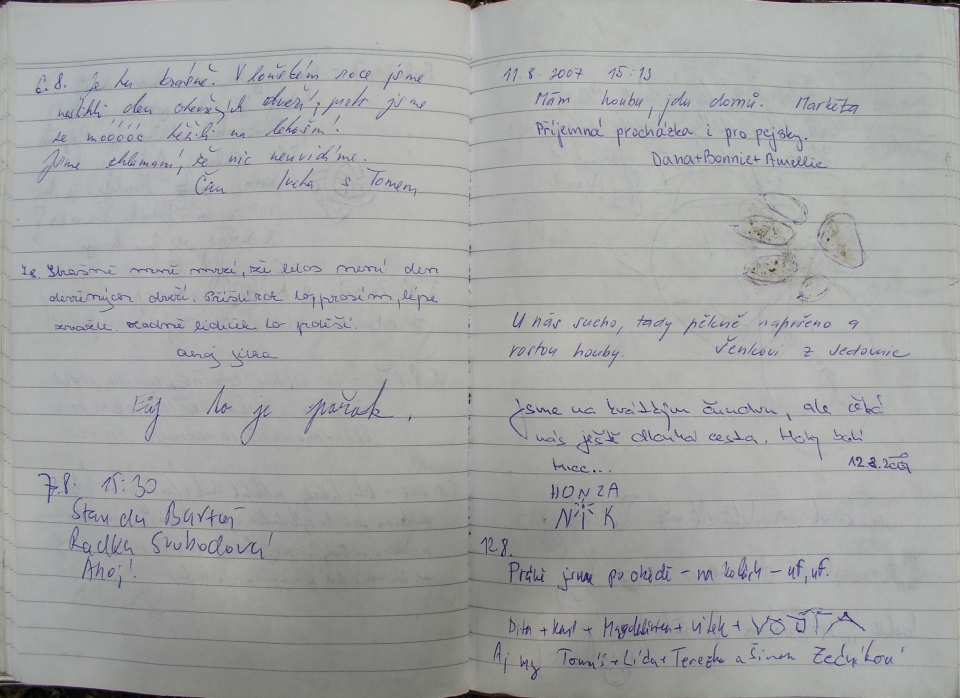 6.8. Je tu krásně. V loňském roce jsme
nestihli den otevřených dveří, proto jsme
se móóóóc těšili na letošní!
Jsme zklamaní, že nic neuvidíme.
Čau s Tomem
Strašně mně mrzí, že letos není den
dveří. Příští rok to, prosím, lépe
zvažte. Hodně lidiček to potěší.
ahoj Jirka
to je pařák.
7.8. 15:30
Standa Bartoš
Radka Svobodová
Ahoj!
11.8.2007 15:13
Mám houbu, jdu domů. Markéta
Příjemná procházka i pro pejsky.
Dana+Bonnie+Amellie
U nás sucho, tady pěkně napršeno a
rostou houby. Šenkovi z Vedrovic
jsme na krátkým čundru, ale čeká
nás ještě dlouhá cesta. Nohy bolí
moc...
12.8.2007
HONZA
NIK
12.8.
Právě jsme po obědě - na kolech - uf, uf.
Dita + Karel + + Vítek + VOJTA
Aj my Tomáš+Lída+Terezka a Šimon